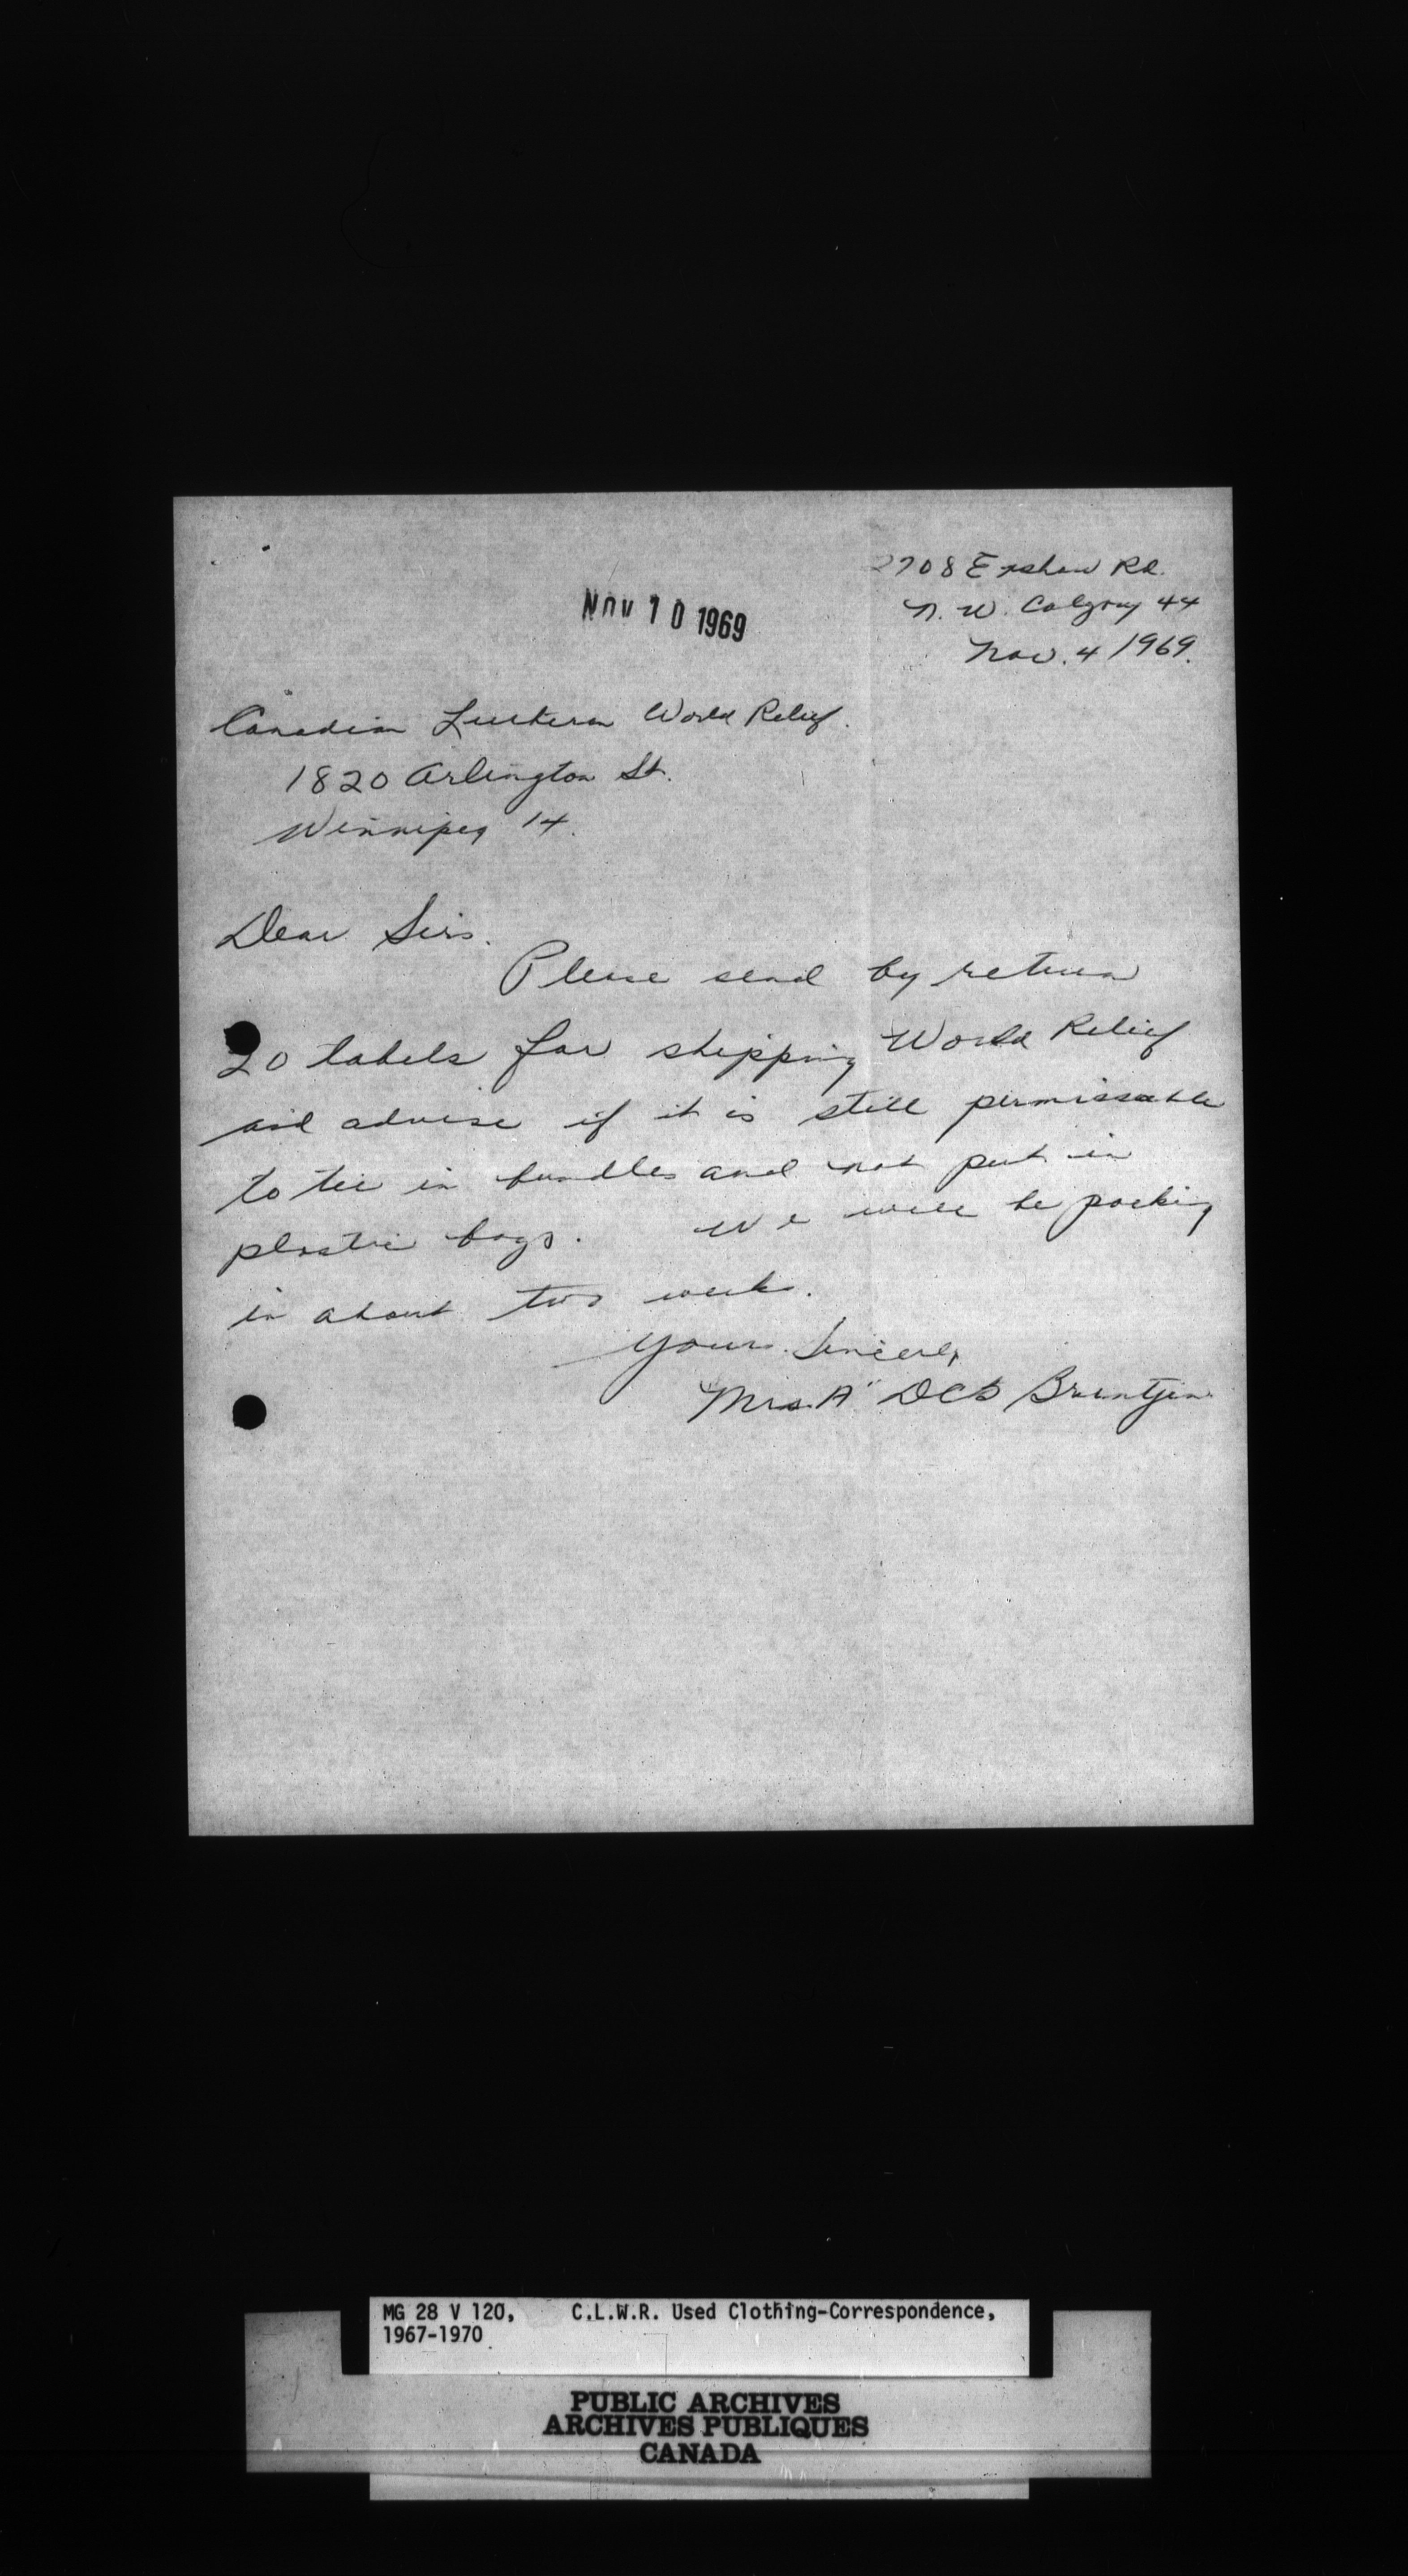 2708 Exshaw Rd.
N. W. Calgary 44
Nov. 4 1969.
NOV 10 1969
Canadian Lutheran World Relief.
1820 Arlington St.
Winnipeg 14.
Dear Sirs.
Please send by return
20 labels for shipping World Relief
and advise if it is still permissable
to tie in bundles and not put in
plastic bags. We will be packing
in about two weeks.
Yours Sincerely
Mrs. A
MG 28 V 120, C.L.W.R. Used Clothing-Correspondence,
1967-1970
PUBLIC ARCHIVES
ARCHIVES PUBLIQUES
CANADA